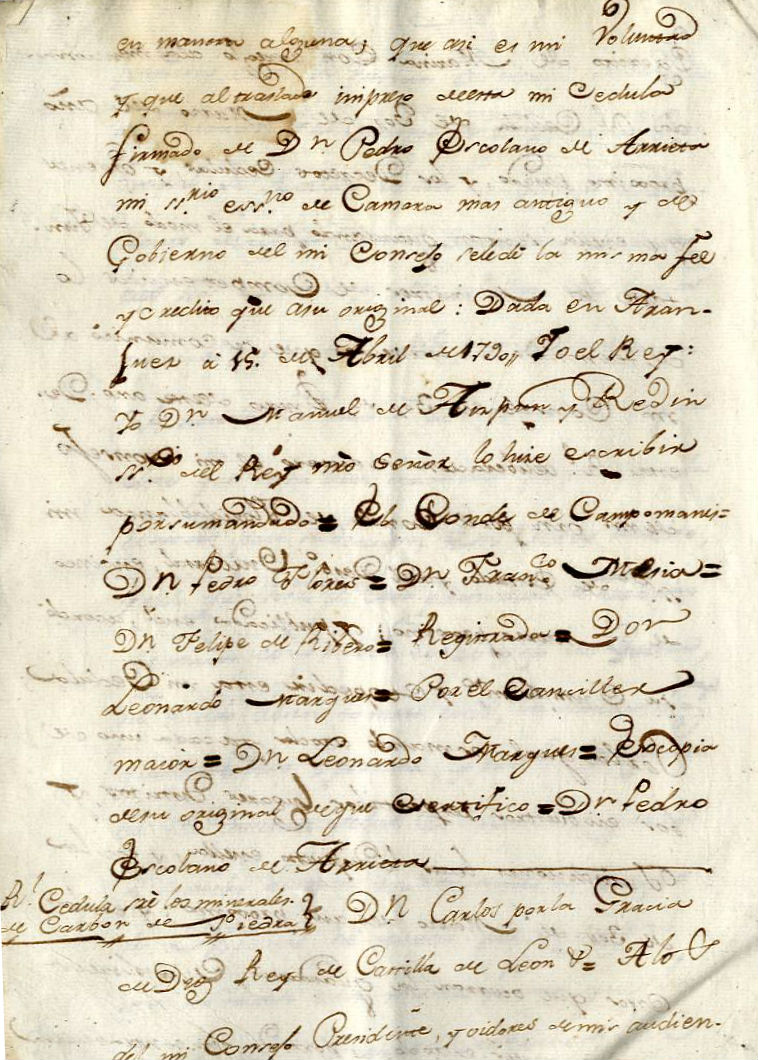 en manera alguna; que asi es mi Voluntad
y que al traslado impreso de esta mi Cedula
firmado de Dn. Pedro Escolano de Arrieta
mi ss.rio ess.no de Camara mas antiguo y de
Gobierno del mi Consejo sele dé la misma fee
y credito que asu original: Dada en Aran-
juez à 15. de Abril de 1790,, Yo el Rey:
Yo Dn. Manuel de Aizpun y Redin
ss.rio del Rey nrò Señor lo hize escribir
porsumandado = El Conde de Campomanes =
Dn. Pedro Flores = Dn. Fran.co Mesia =
Dn Felipe de Ribero = Registrada = Don
Leonardo Marques = Por el Canciller
maior = Dn Leonardo Marques = Es copia
desu original de que certifico = Dn Pedro
Escolano de Arrieta
Rl. Cedula srè los minerales
de Carbon de Piedra
Dn Carlos por la Gracia
de Dios Rey de Castilla de Leon &= A los
del mi Consejo Presidente, y oidores de mis audien-